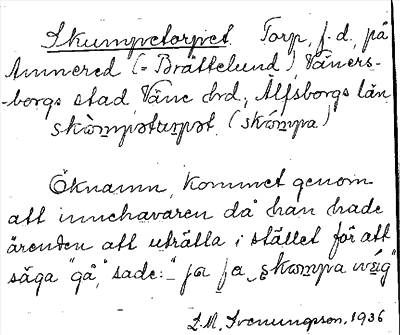 Skumpetorpet. Torp, f.d., på
Annered (= Brättelund), Väners-
-borgs stad, Väne hrd, Älfsborgs län.
skòmpetωrpet. (skómpa)
Öknamn, kommet genom
att innehavaren då han hade
ärenden att uträtta i stället för att
säga "gå", sade: "ja ... skompa iväg"
L.M. Svenungsson, 1936